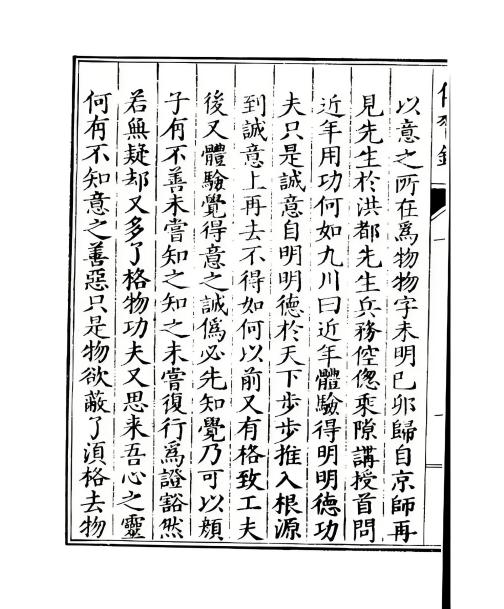 傳習錄
以意之所在爲物物字未明己卯歸自京師再
見先生於洪都先生兵務倥偬乘隙講授首問
近年用功何如九川曰近年體驗得明明德功
夫只是誠意自明明德於天下步步推入根源
到誠意上再去不得如何以前又有格致工夫
後又體驗覺得意之誠僞必先知覺乃可以顔
子有不善未嘗知之知之未嘗復行爲證豁然
若無疑却又多了格物功夫又思来吾心之靈
何有不知意之善惡只是物欲蔽了湏格去物